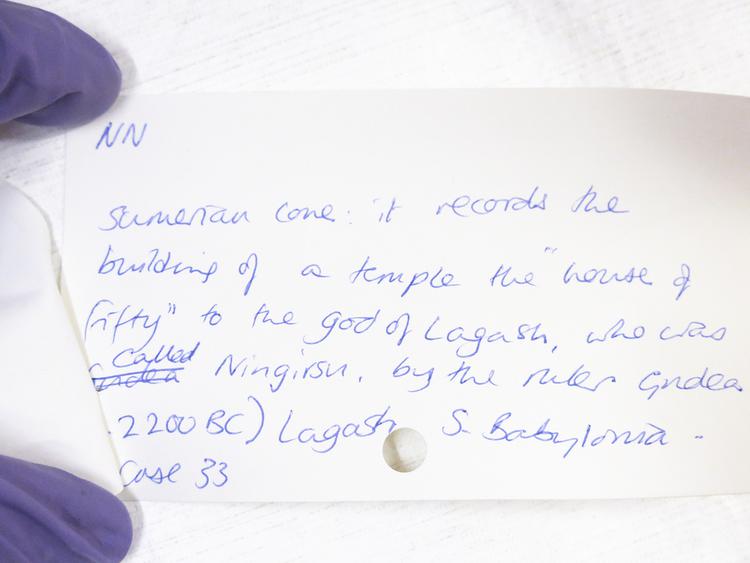 NN
Sumerian cone: it records the
building of a temple the "house of
fifty" to the god of Lagash, who was
called Ningirsu, by the ruler Gudea
2200 BC) Lagash S. Babylonia -
Case 33